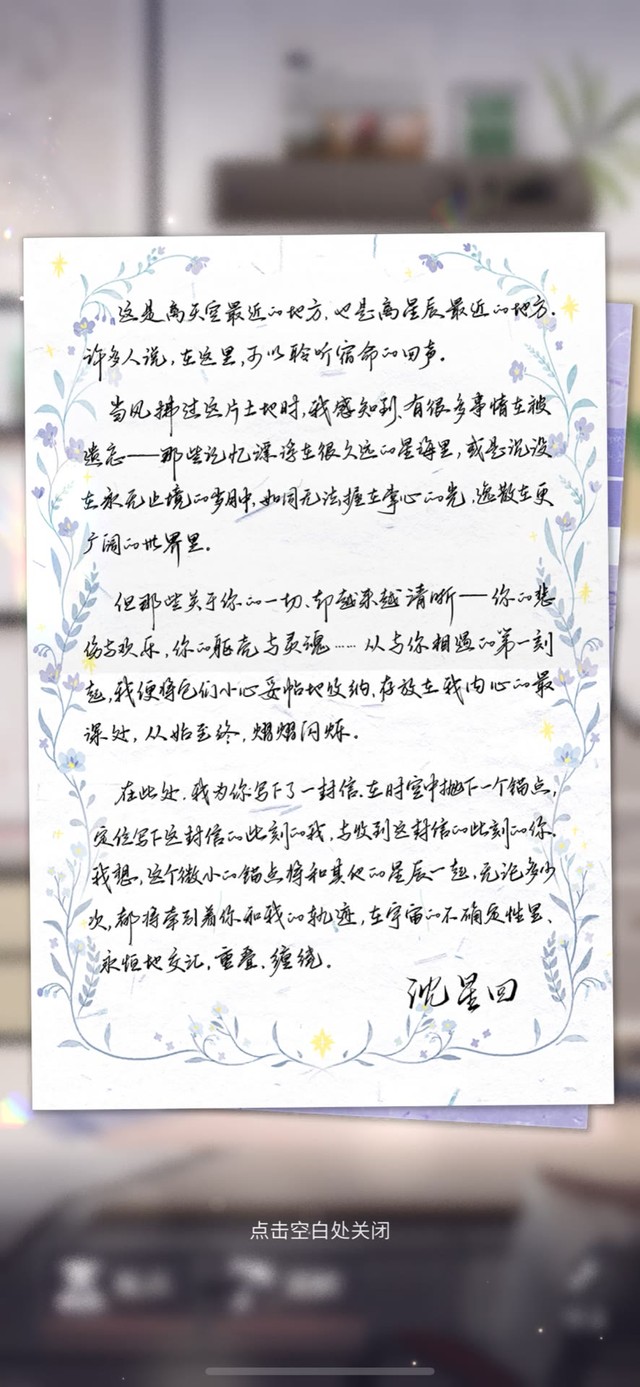 这是离天空最近的地方，也是离星辰最近的地方。
许多人说，在这里，可以聆听宿命的回声。
当风拂过这片土地时，我感知到，有很多事情在被
遗忘——那些记忆漂浮在很久远的星海里，或是沉没
在永无止境的岁月中，如同无法握在掌心的光，逸散在更
广阔的世界里。
但那些关于你的一切，却越来越清晰——你的悲
伤与欢乐，你的躯壳与灵魂……从与你相遇的第一刻
起，我便将它们小心妥帖地收纳，存放在我内心的最
深处，从始至终，熠熠闪烁。
在此处，我为你写下了一封信，在时空中抛下一个锚点，
定位写下这封信的此刻的我，与收到这封信的此刻的你。
我想，这个微小的锚点将和其他的星辰一起，无论多少
次，都将牵引着你和我的轨迹，在宇宙的不确定性里、
永恒地交汇，重叠，缠绕。
沈星回
点击空白处关闭